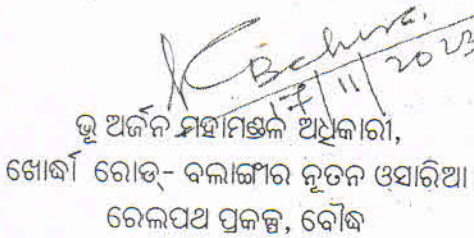 Behera.
17/11/2023
ଭୂ ଅର୍ଜନ ମହାମଣ୍ଡଳ ଅଧିକାରୀ,
ଖୋର୍ଦ୍ଧା ରୋଡ୍- ବଲାଙ୍ଗୀର ନୂତନ ଓସାରିଆ
ରେଲପଥ ପ୍ରକଳ୍ପ, ବୌଦ୍ଧ